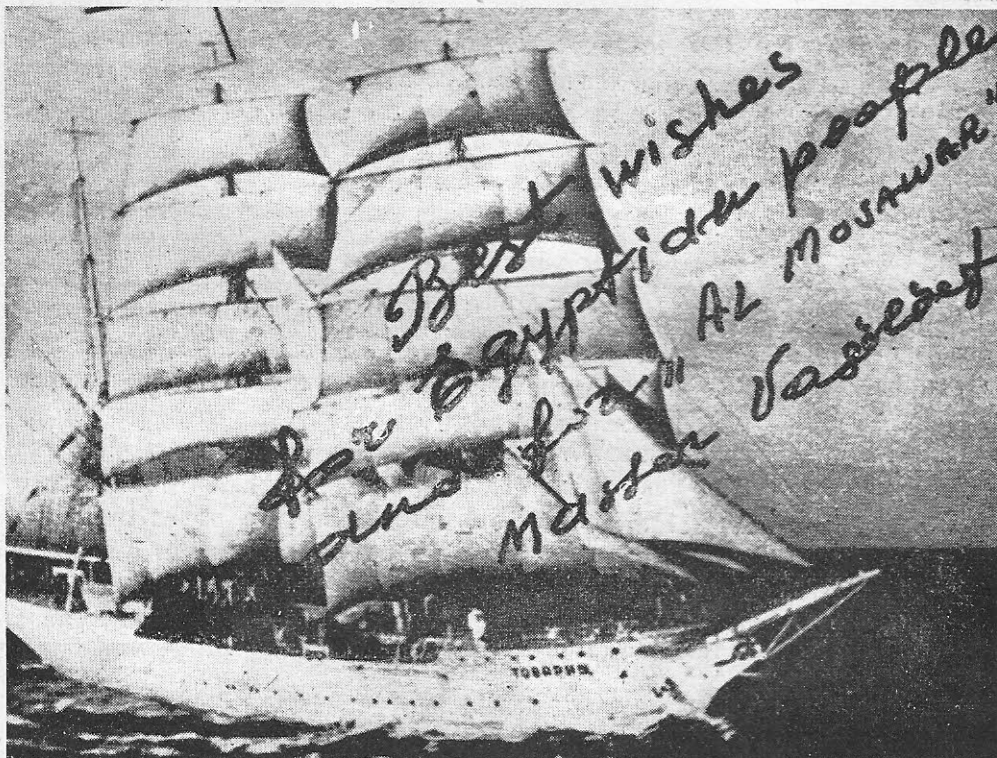 Best wishes
for Egyptian people
and for "AL MOSAWAR"
Master Vasiliev
ТОВАРИЩ